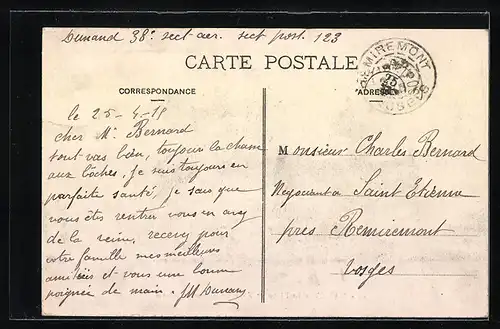 Dunand 38e sect aer. sect post. 123
CARTE POSTALE
CORRESPONDANCE
ADRESSE
REMIREMONT
VOSGES
25
le 25-4-15
cher Mr Bernard
tout vas bien, toujours la chasse
aux bôches, je suis toujours en
parfaite santé, je sais que
vous êts rentrer vous en avez
de la veine, recevez pour
votre famille mes meilleures
amitiées et vous une bonne
poignée de main. JM Dunand
Monsieur Charles Bernard
Negociant a Saint Etienne
près Remiremont
Vosges